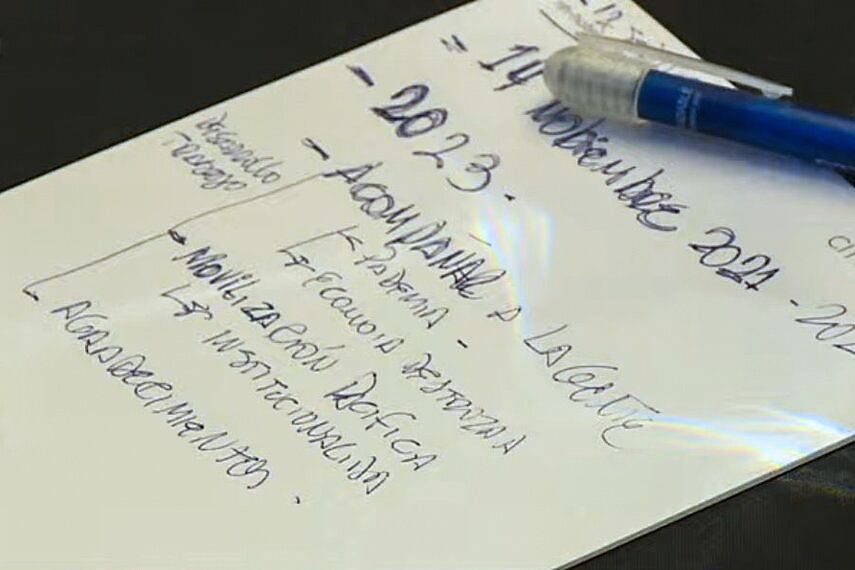 - 12
- 14 NOBIEMBRE 2021 - 202
- 2023.
DESARROLLO
TRABAJO
- ACOMPAÑAR A LA GENTE
PADEMIA -
ECONOIA DESTROZADA
MOVILIZACIÓN PACIFICA
INSTITUCIONALIDA
AGRADECIMIENTOS.